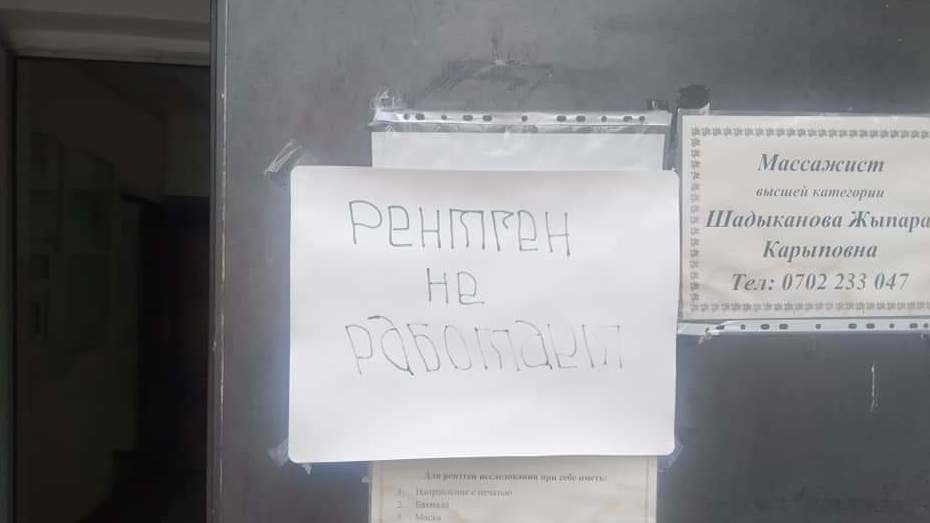 Рентген
не
работает
Массажист
высшей категории
Шадыканова Жыпара
Карыповна
Тел: 0702 233 047
Для рентген исследования при себе иметь:
1. Направление с печатью
2. Бахилы
3. Маска